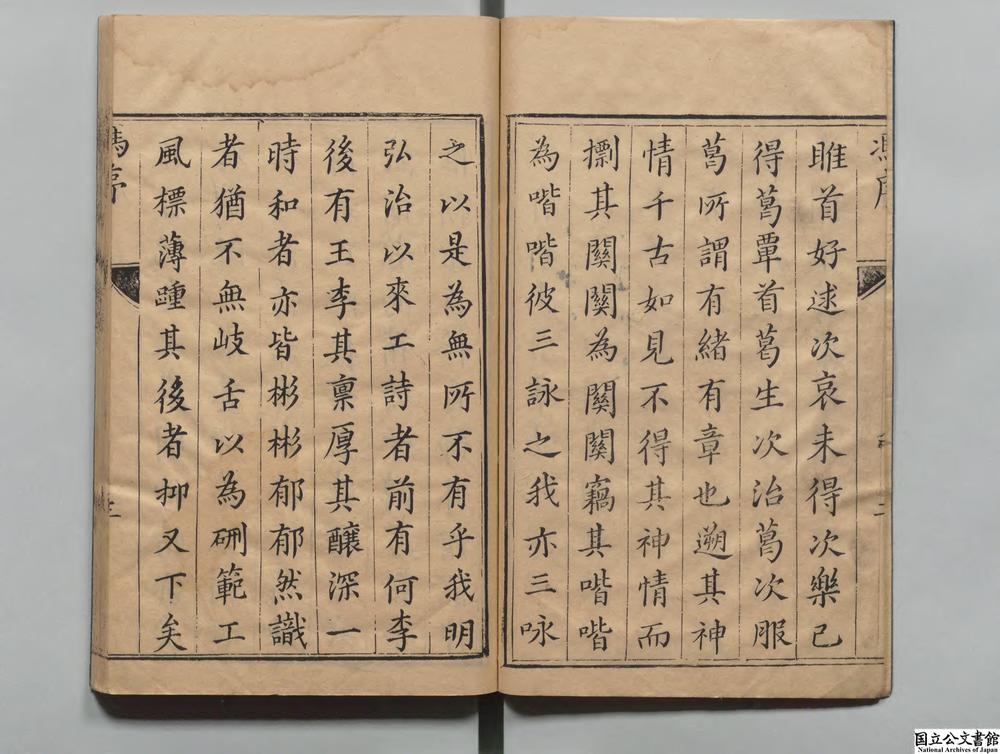 雎首好逑次哀未得次樂已
得葛覃首葛生次治葛次服
葛所謂有緒有章也遡其神
情千古如見不得其神情而
摽其關關為關關竊其喈喈
為喈喈彼三詠之我亦三咏
之以是為無所不有乎我明
弘治以來工詩者前有何李
後有王李其稟厚其釀深一
時和者亦皆彬彬郁郁然識
者猶不無岐舌以為硎範工
風標薄踵其後者抑又下矣
馮序
三
国立公文書館
National Archives of Japan